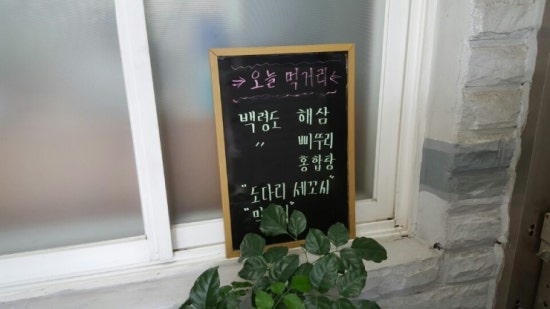 오늘 먹거리
백령도 해삼
〃 삐뚜리
홍합탕
"도다리 세꼬시"